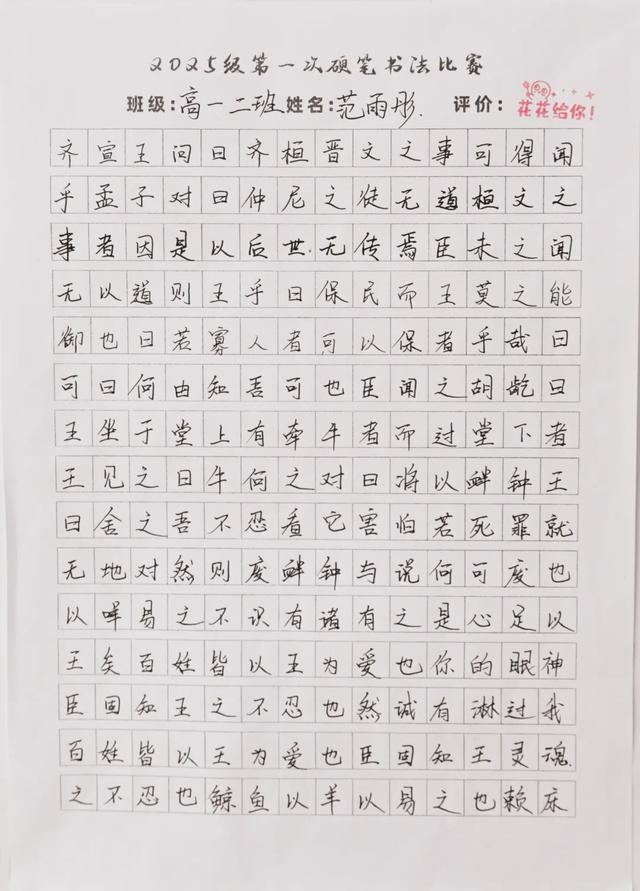 2025级第一次硬笔书法比赛
班级:高一二班 姓名:范雨彤. 评价: 花花给你!
齐宣王问曰齐桓晋文之事可得闻
乎孟子对曰仲尼之徒无道桓文之
事者因是以后世.无传焉臣未之闻
无以道则王乎曰保民而王莫之能
御也曰若寡人者可以保者乎哉曰
可曰何由知吾可也臣闻之胡龁曰
王坐于堂上有牵牛者而过堂下者
王见之曰牛何之对曰将以衅钟王
曰舍之吾不忍看它害怕若死罪就
无地对然则废衅钟与说何可废也
以咩易之不识有诸有之是心足以
王矣百姓皆以王为爱也你的眼神
臣固知王之不忍也然诚有淋过我
百姓皆以王为爱也臣固知王灵魂
之不忍也鲸鱼以羊以易之也赖床